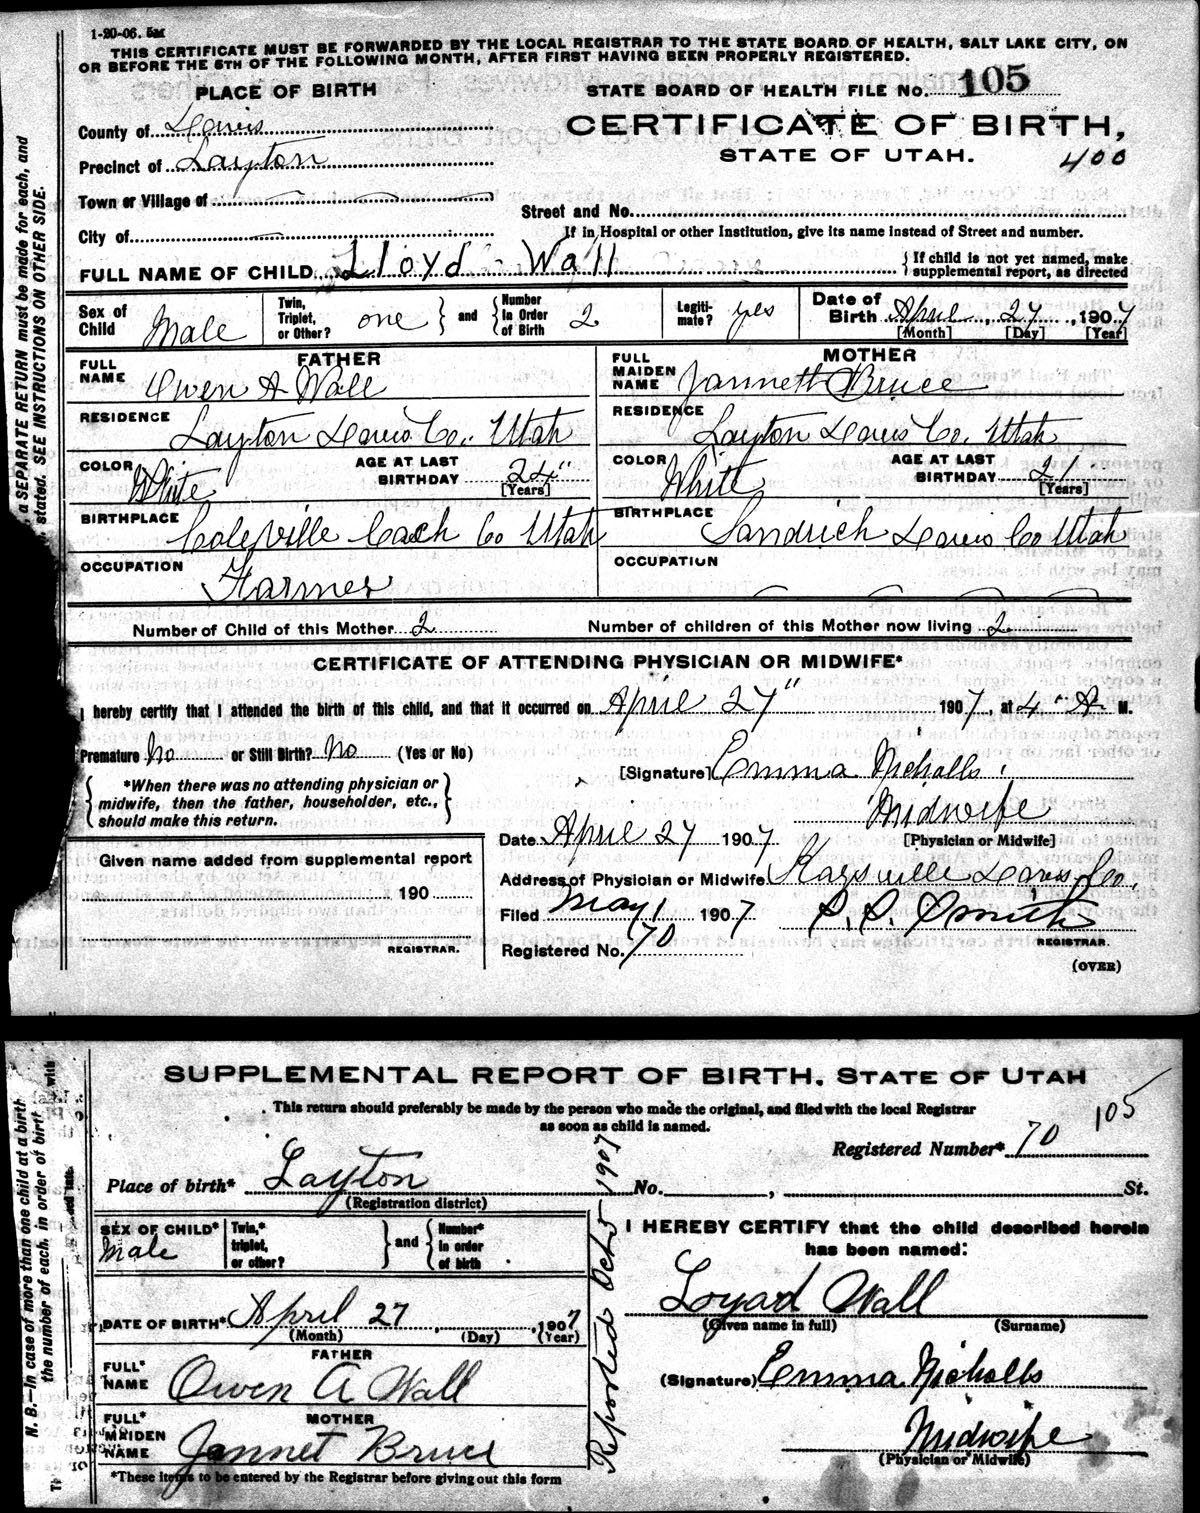 1-20-06. 5M
THIS CERTIFICATE MUST BE FORWARDED BY THE LOCAL REGISTRAR TO THE STATE BOARD OF HEALTH, SALT LAKE CITY, ON
OR BEFORE THE 5TH OF THE FOLLOWING MONTH, AFTER FIRST HAVING BEEN PROPERLY REGISTERED.
PLACE OF BIRTH
STATE BOARD OF HEALTH FILE No. 105
County of Davis
CERTIFICATE OF BIRTH,
Precinct of Layton
STATE OF UTAH.
400
Town or Village of
Street and No.
City of
If in Hospital or other Institution, give its name instead of Street and number.
FULL NAME OF CHILD Lloyd Wall
{ If child is not yet named, make supplemental report, as directed
Sex of Child Male
Twin, Triplet, or Other? one } and { Number In Order of Birth 2
Legitimate? yes
Date of Birth April, 27, 1907
[Month] [Day] [Year]
FATHER
FULL NAME Owen A Wall
RESIDENCE
Layton Davis Co. Utah
COLOR White
AGE AT LAST BIRTHDAY 24"
[Years]
BIRTHPLACE
Coleville Cach Co Utah
OCCUPATION
Farmer
MOTHER
FULL MAIDEN NAME Jannett Bruce
RESIDENCE
Layton Davis Co. Utah
COLOR White
AGE AT LAST BIRTHDAY 21
[Years]
BIRTHPLACE
Sandrich Davis Co Utah
OCCUPATION
Number of Child of this Mother 2
Number of children of this Mother now living 2
CERTIFICATE OF ATTENDING PHYSICIAN OR MIDWIFE*
I hereby certify that I attended the birth of this child, and that it occurred on April 27" 1907, at 4 " A M.
Premature No or Still Birth? No (Yes or No)
{ *When there was no attending physician or midwife, then the father, householder, etc., should make this return. }
[Signature] Emma Nicholls
Midwife
[Physician or Midwife]
Date April 27 1907
Address of Physician or Midwife. Kaysville Davis Co.
Given name added from supplemental report
190
REGISTRAR.
Filed May 1 1907
Smith
REGISTRAR.
Registered No. 70
(OVER)
a SEPARATE RETURN must be made for each, and
stated. SEE INSTRUCTIONS ON OTHER SIDE.
SUPPLEMENTAL REPORT OF BIRTH, STATE OF UTAH
This return should preferably be made by the person who made the original, and filed with the local Registrar
as soon as child is named.
105
Registered Number* 70
Place of birth* Layton No. , St.
(Registration district)
SEX OF CHILD*
Male
Twin,* triplet, or other? } and { Number* in order of birth
DATE OF BIRTH* April 27 1907
(Month) (Day) (Year)
FATHER
FULL* NAME Owen A Wall
MOTHER
FULL* MAIDEN NAME Jannet Bruce
*These items to be entered by the Registrar before giving out this form
Reported Oct 5 1907
I HEREBY CERTIFY that the child described herein
has been named:
Loyad Wall
(Given name in full) (Surname)
(Signature) Emma Nicholls
Midwife
(Physician or Midwife)
N. B.—In case of more than one child at a birth
the number of each, in order of birth